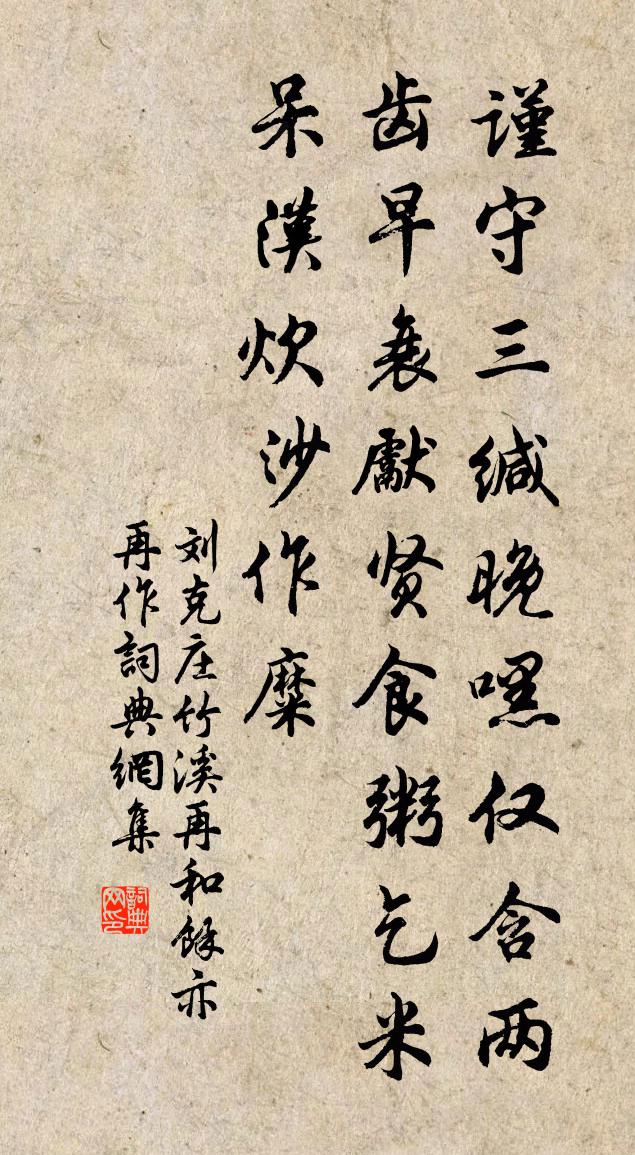 谨守三缄晚嘿仅含两
齿早衰獻贤食粥乞米
呆漢炊沙作糜
刘克庄竹溪再和馀亦
再作詞典網集
詞典网印